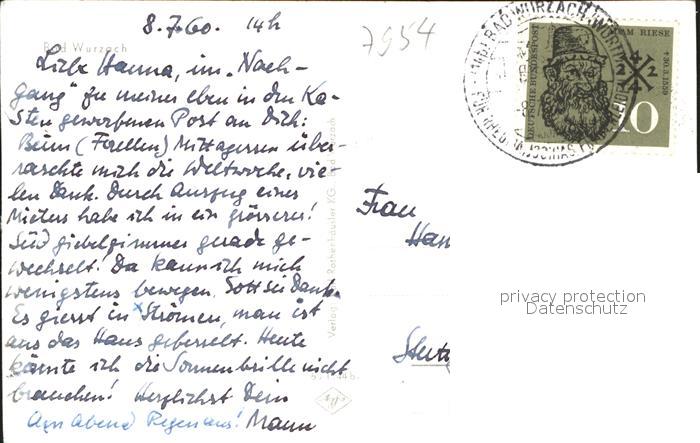 8.7.60. 14h
7954
Bad Wurzach
Liebe Hanna, im "Nach-
gang" zu meiner eben in den Ka-
sten geworfenen Post an Dich:
Beim (Forellen) Mittagessen über-
raschte mich die Weltwoche, vie-
len Dank. Durch Auszug eines
Mieters habe ich in ein grösseres!
Südgiebelzimmer gerade ge-
wechselt! Da kann ich mich
wenigstens bewegen. Gott sei Dank.
Es giesst in Strömen, man ist
aus das Haus gefesselt. Heute
könnte ich die Sonnenbrille nicht
brauchen! Herzlichst Dein
Am Abend Regen aus! Mann
Verlag Rothenhäusler KG Bad Wurzach
BAD WURZACH (WÜRTT
DEUTSCHE BUNDESPOST
ADAM RIESE
+30.3.1559
10
Frau
Han
Stutt
privacy protection
Datenschutz